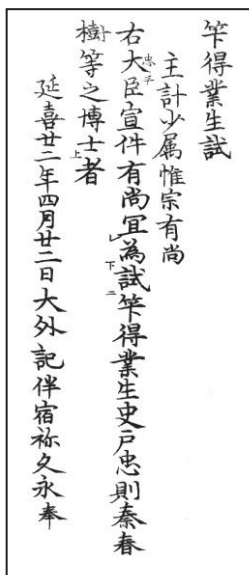 竿得業生試
主計少属惟宗有尚
右大臣忠平宣件有尚冝為下試二竿得業生史戸忠則秦春
樹等之博士上者
延喜廿二年四月廿二日大外記伴宿祢久永奉